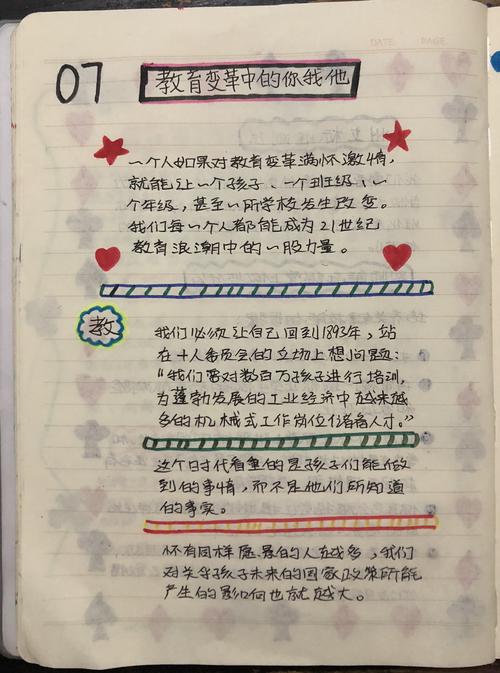 DATE PAGE
07 教育变革中的你我他
一个人如果对教育变革满怀激情,
就能让一个孩子、一个班级,一
个年级,甚至一所学校发生改变。
我们每一个人都能成为21世纪
教育浪潮中的一股力量。
教
我们必须让自己回到1893年,站
在十人委员会的立场上想问题:
"我们要对数百万孩子进行培训,
为蓬勃发展的工业经济中越来越
多的机械式工作岗位储备人才。"
这个时代看重的是孩子们能做
到的事情,而不是他们所知道
的事实。
怀有同样愿景的人越多,我们
对关乎孩子未来的国家政策所能
产生的影响也就越大。